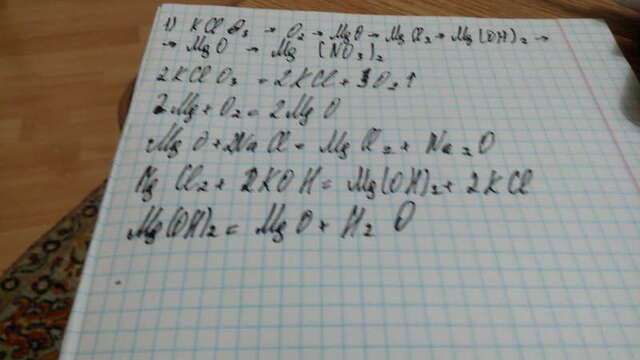 1) KClO₃ → O₂ → MgO → MgCl₂ → Mg(OH)₂ →
→ MgO → Mg (NO₃)₂
2KClO₃ = 2KCl + 3O₂↑
2Mg + O₂ = 2MgO
MgO + 2NaCl = MgCl₂ + Na₂O
MgCl₂ + 2KOH = Mg(OH)₂ + 2KCl
Mg(OH)₂ = MgO + H₂O